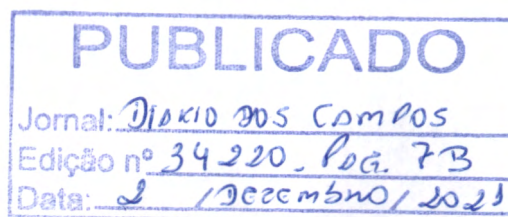 PUBLICADO
Jornal: DIÁRIO DOS CAMPOS
Edição nº 34220. PáG. 7B
Data: 2 / DEZEMbRO / 2021